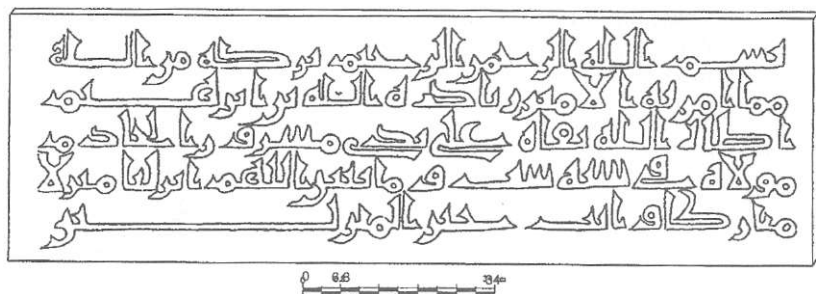 بسم الله الرحمن الرحيم بركة من الله
مما امر به الامير زيادة الله بن ابراهيم
اطال الله بقاه على يدي مسرور الخادم
مولاه في سنة ست ومايتين اللهم انزلنا منزلا
مباركا وانت خير المنزلين
0 6.6 13.4